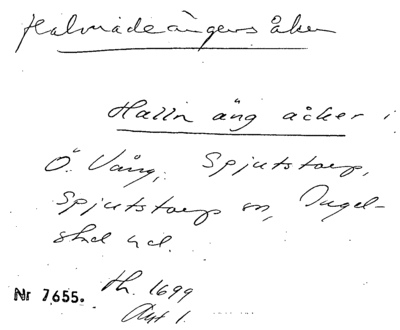 Halmadeängens åker
Halln äng åcker i
Ö. Vång, Spjutstorp,
Spjutstorp sn, Ingel-
stad hd.
Nr 7655. Lh. 1699
Akt 1.